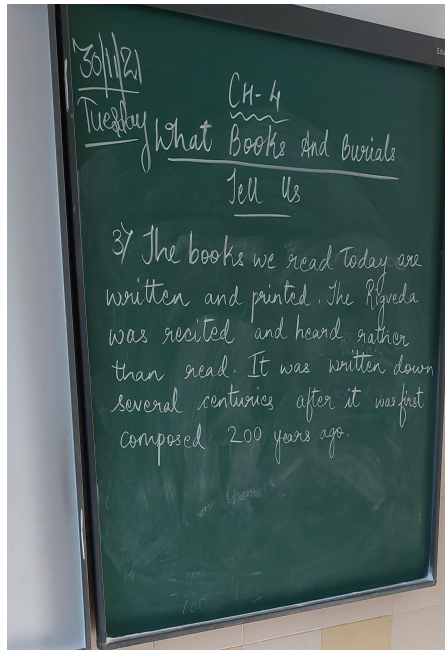 30/11/21
Tuesday
CH-4
What Books And Burials
Tell Us
3) The books we read Today are
written and printed. The Rigveda
was recited and heard rather
than read. It was written down
several centuries after it was first
composed 200 years ago.